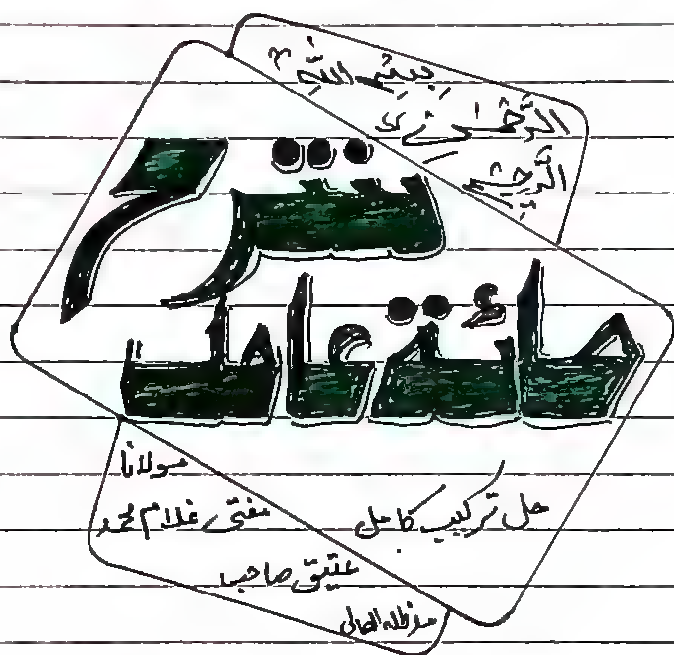 بِسْمِ اللّٰهِ
الرَّحْمٰنِ
الرَّحِيْمِ
شرح
مائة عامل
حل تركيب كامل
مولانا
مفتی غلام محمد
عتیق صاحب
مدظلہ العالی